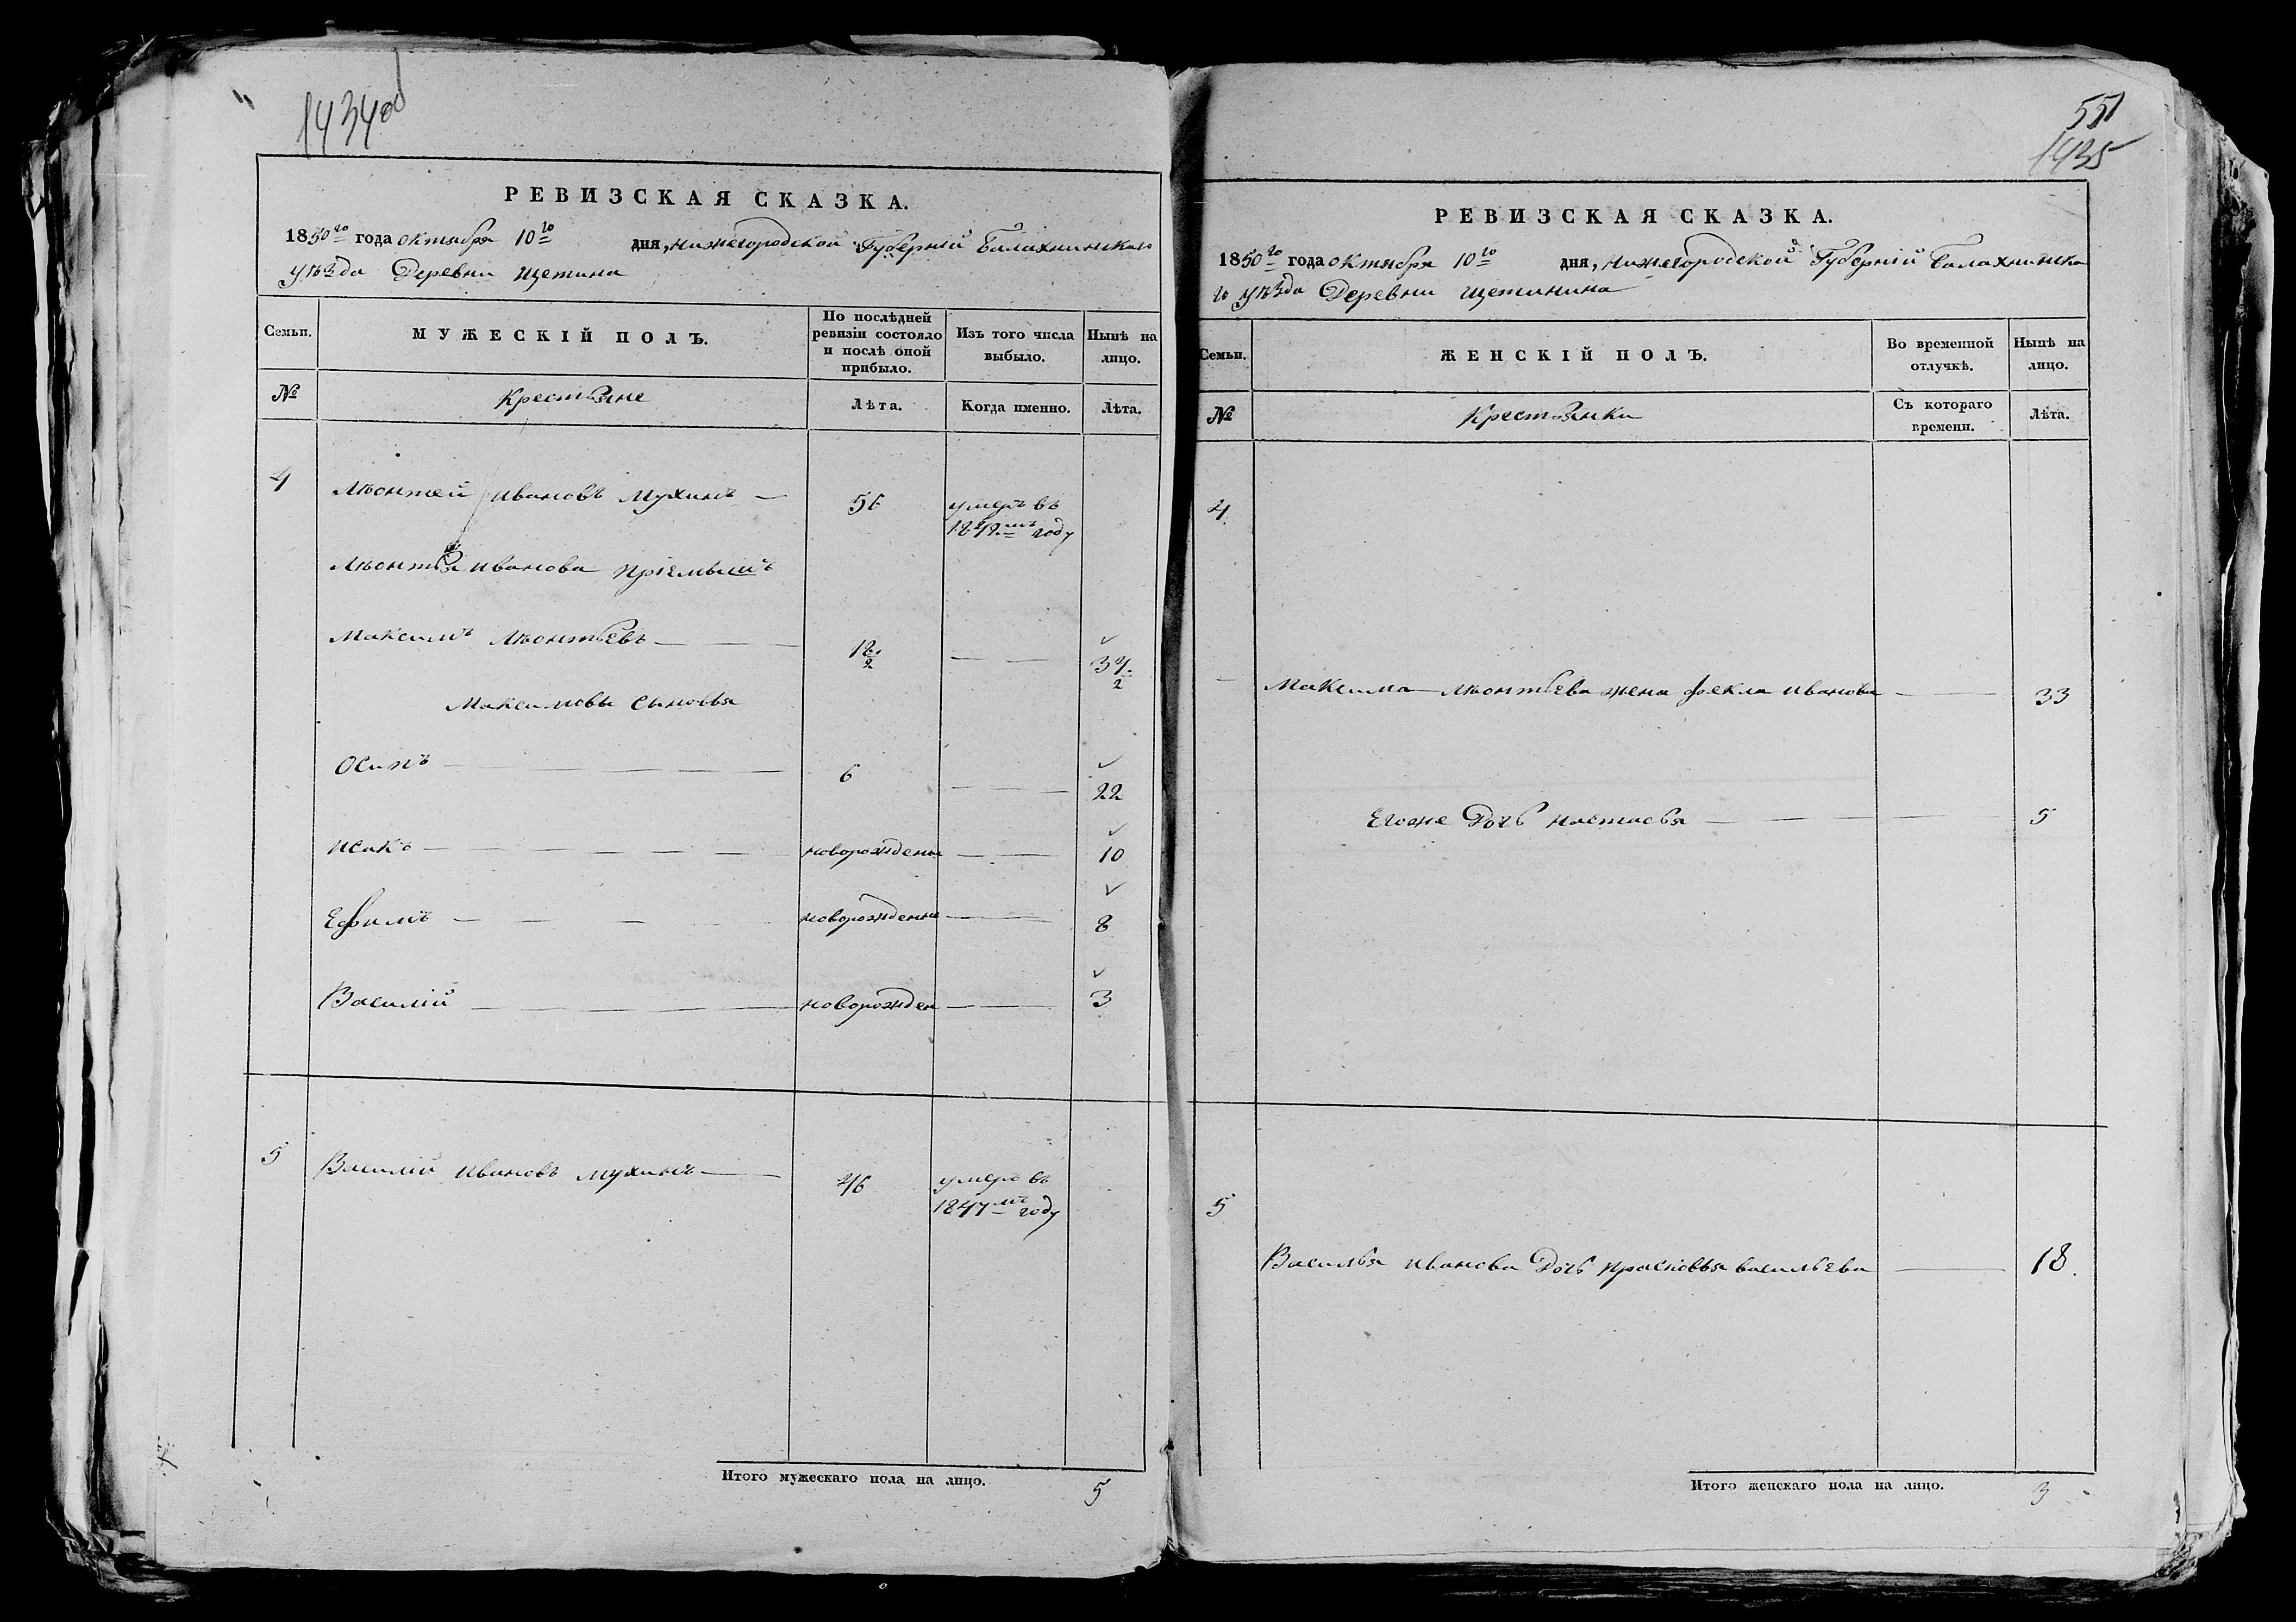 1434об
РЕВИЗСКАЯ СКАЗКА.
1850го года октября 10го дня, Нижегородской Губерніи Балахнинскаго
уѣзда Деревни Щетина
Семьи. МУЖЕСКІЙ ПОЛЪ. По послѣдней ревизіи состояло и послѣ оной прибыло. Изъ того числа выбыло. Нынѣ на лицо.
№ Крестьяне Лѣта. Когда именно. Лѣта.
4 Лѣонтей Ивановъ Мухинъ 56 умеръ въ
году
Лѣонтья Иванова пріемышъ
Максимъ Лѣонтьевъ
Максимовы сыновья
Осипъ 6 22
Исакъ новорожденны 10
Ефимъ новорожденны 8
Василій новорожден 3
5 Василій Ивановъ Мухинъ 46 умеръ въ
1847мъ году
Итого мужескаго пола на лицо. 5
551
1435
РЕВИЗСКАЯ СКАЗКА.
1850го года октября 10го дня, Нижегородской Губерніи Балахнинска
го уѣзда Деревни Щетинина
Семьи. ЖЕНСКІЙ ПОЛЪ. Во временной отлучкѣ. Нынѣ на лицо.
№ Крестьянки Съ котораго времени. Лѣта.
4
Максима Лѣонтьева жена Фекла Иванова 33
Егоже Дочь Настасья 5
5
Василья Иванова Дочь Прасковья Васильева 18.
Итого женскаго пола на лицо. 3